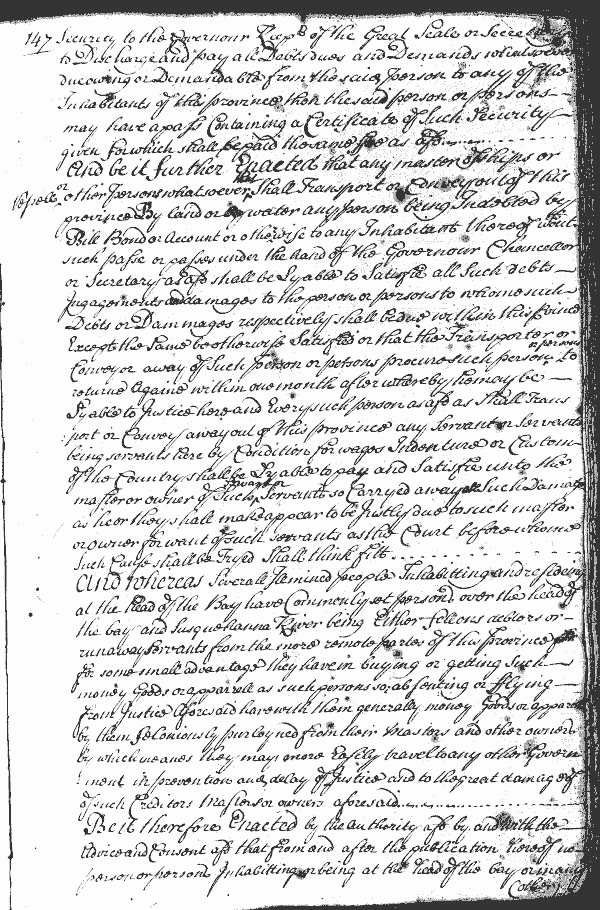 147 Security to the Governour Keepr of the Great Seale or Secretary
to Discharge and pay all Debts dues and Demands whatsoever
due owing or Demandable from the said person to any of the
Inhabitants of this province then the said person or persons
may have a pass Containing a Certificate of such Security
given for which shall be paid the same fee as afsd
And be it further Enacted that any master of ships or
Vessels or other persons whatsoever that Shall Transport or Convey out of this
province By land or by water any person being Indebted by
Bill Bond or Account or otherwise to any Inhabitant thereof without
such passe or passes under the hand of the Governour Chancellor
or Secretary as afsd shall be Lyable to Satisfie all Such debts
Ingagements and damages to the person or persons to whome such
Debts or Dammages respectively shall be due within this province
Except the Same be otherwise Satisfied or that the Transporter or
Conveyor away of Such person or persons procure such person or persons to
returne Againe within one month after whereby he may be
Lyable to Justice here and Every such person as afsd as Shall Trans
port or Convey away out of this province any Servant or Servants
being servants here by Condition for wages Indenture or Custom
of the Country shall be Lyable to pay and Satisfie unto the
master or owner of Such Servant or Servants so Carryed away all Such Damage
as he or they shall make appear to be Justly due to such master
or owner for want of such servants as the Court before whome
Such Cause shall be Tryed Shall think fitt
And whereas Severall Ill minded people Inhabitting and residing
at the head of the Bay have Commonly set persons over the head of
the bay and Susquehanna River being Either fellons debtors or
runaway servants from the more remote partes of this province
for some small advantage they have in buying or getting Such
money Goods or apparell as such persons so absenting or fflying
from Justice Aforesaid have with them generally money Goods or apparell
by them feloniously purloyned from their Masters and other owners
by which meanes they may more Easily travel to any other Govern
ment in prevention and delay of Justice and to the great damage of
of such Creditors Masters or owners aforesaid
Be it therefore Enacted by the authority afsd by and with the
Advice and Consent afsd that from and after the publication hereof no
person or persons Inhabitting or being at the head of the bay or in any
other